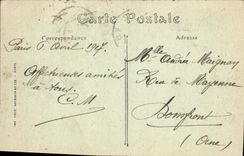 Carte Postale
Correspondance
Paris 6 Avril 1917.
Affectueuses amitiés
à tous.
C.M
Mlle Andrée Maignan
Rue de Mayenne
Domfront
(Orne)